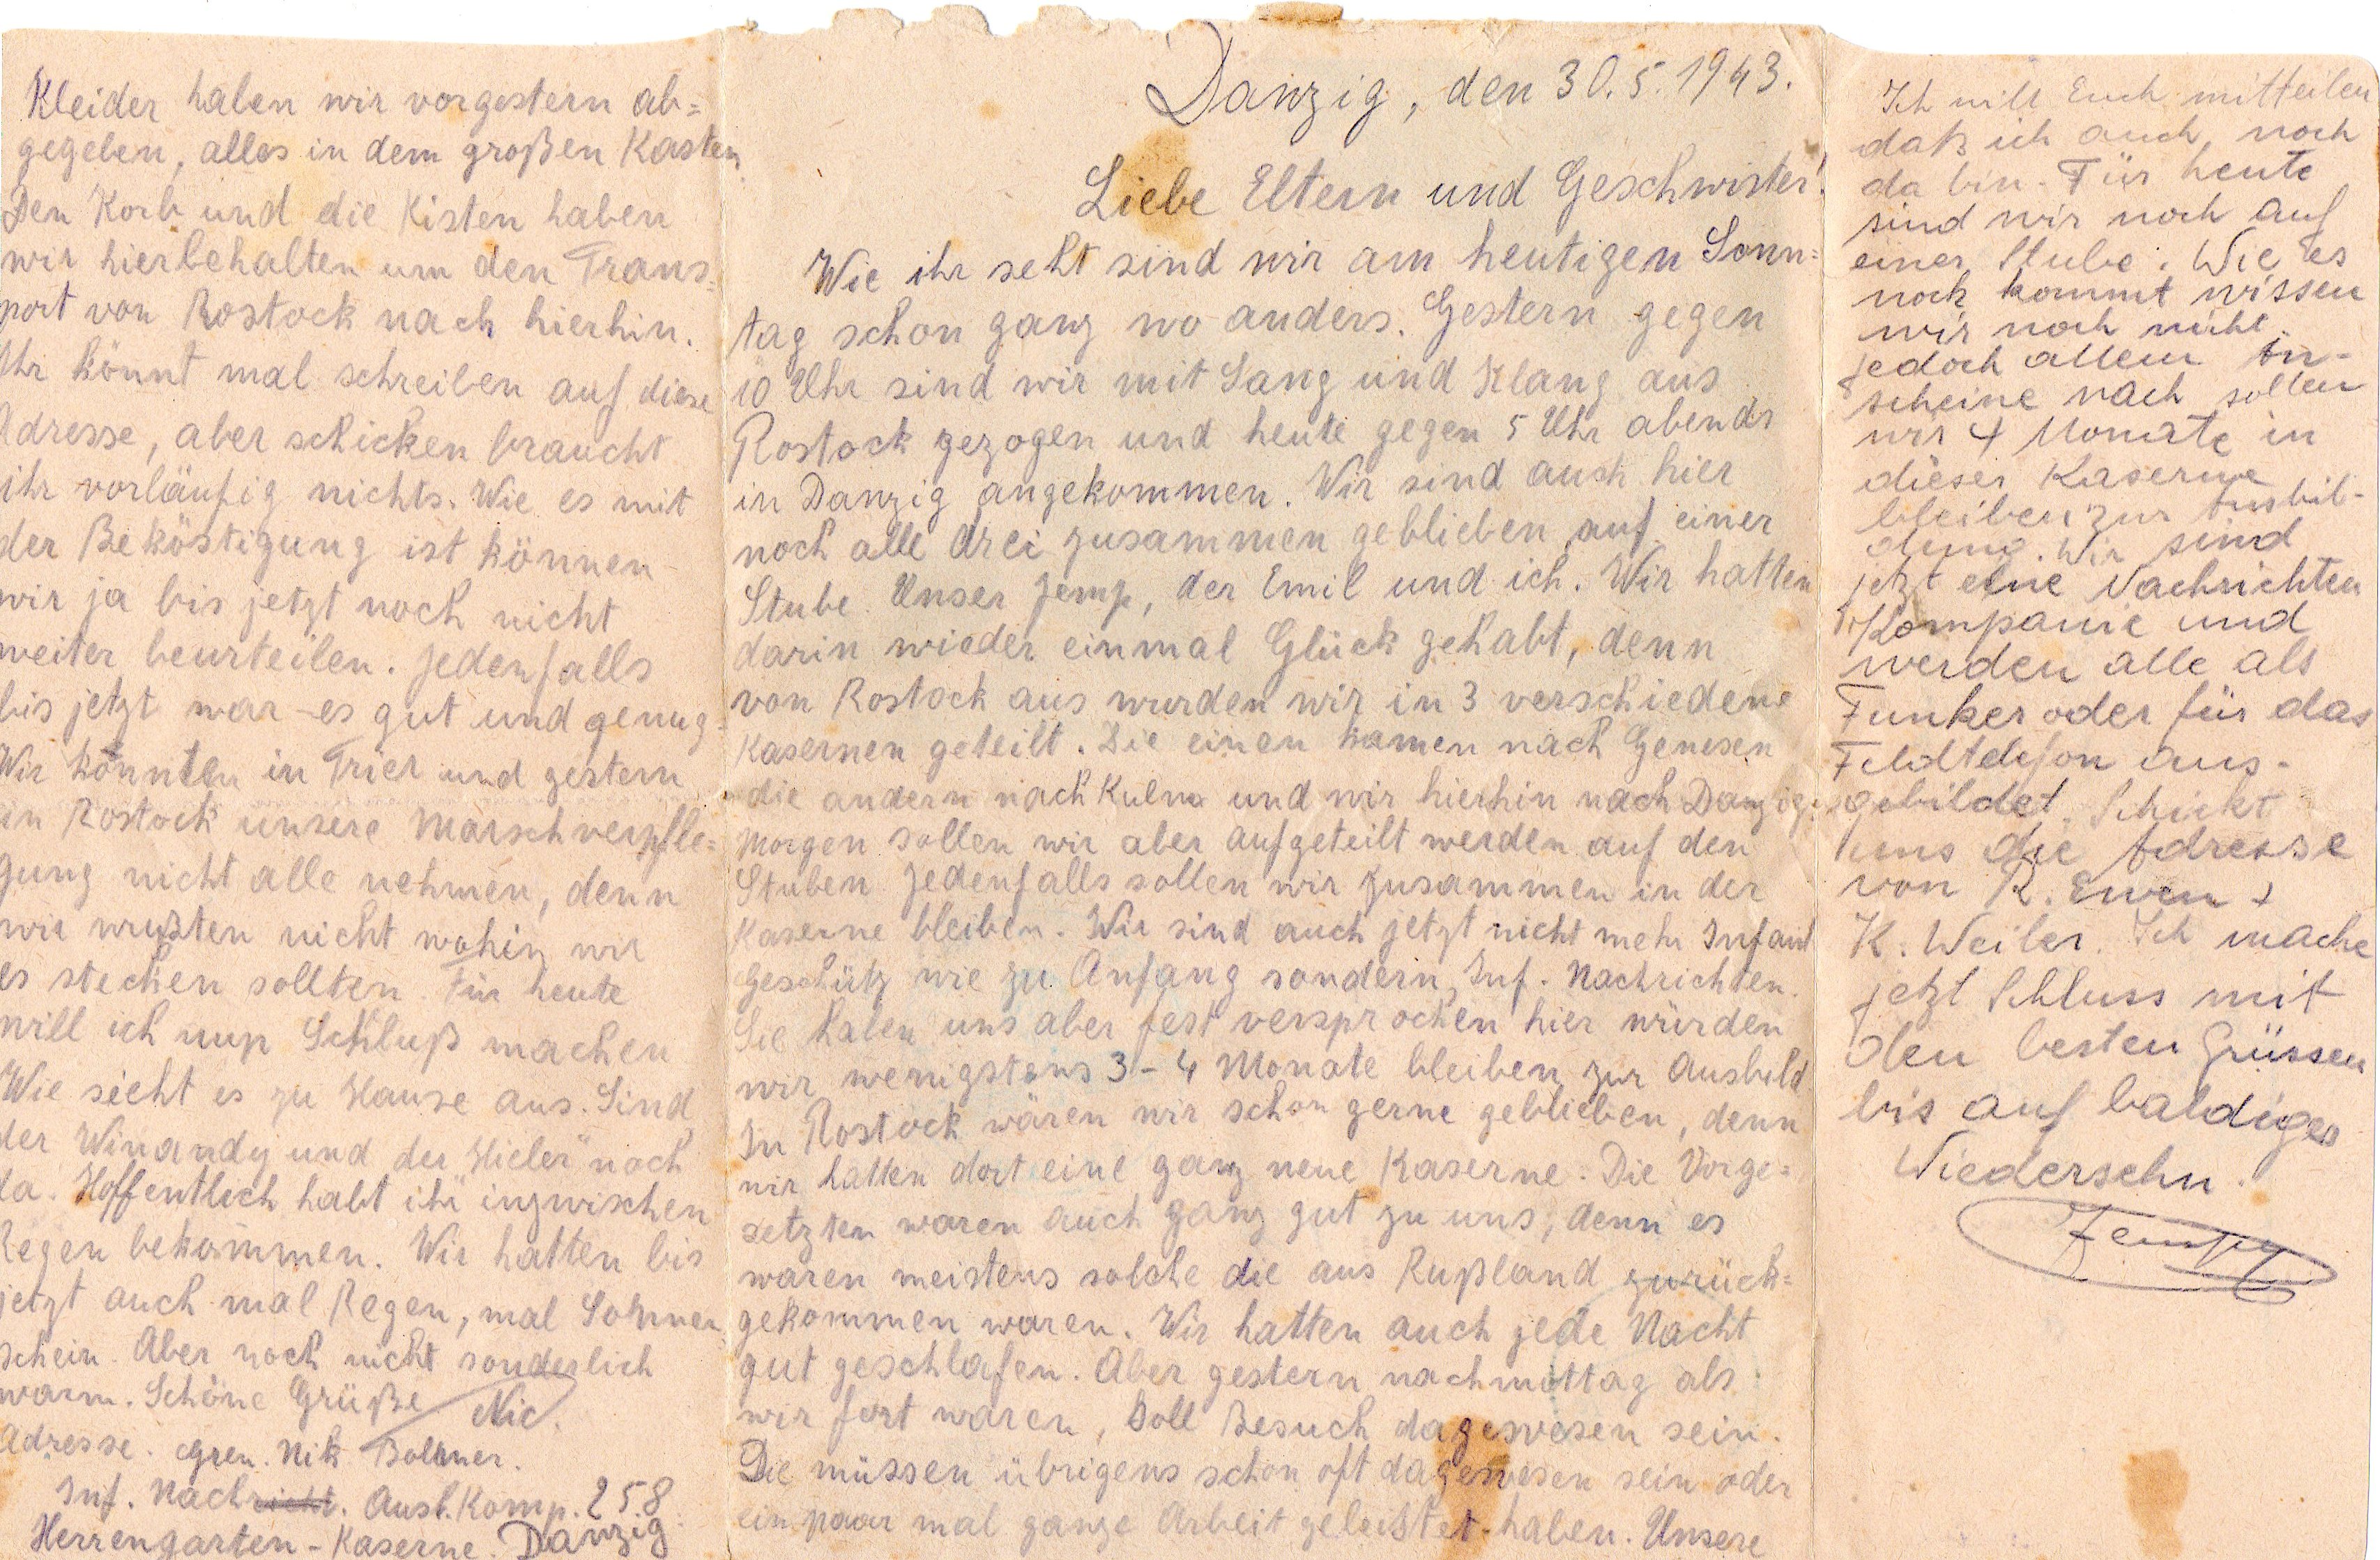 Danzig, den 30.5.1943.
Liebe Eltern und Geschwister!
Wie ihr seht sind wir am heutigen Sonn=
tag schon ganz wo anders. Gestern gegen
10 Uhr sind wir mit Sang und Klang aus
Rostock gezogen und heute gegen 5 Uhr abends
in Danzig angekommen. Wir sind auch hier
noch alle drei zusammen geblieben auf einer
Stube. Unser Jemp, der Emil und ich. Wir hatten
darin wieder einmal Glück gehabt, denn
von Rostock aus wurden wir in 3 verschiedene
Kasernen geteilt. Die einen kamen nach Genesen
die andern nach Kulm und wir hierhin nach Danzig.
Morgen sollen wir aber aufgeteilt werden auf den
Stuben. Jedenfalls sollen wir zusammen in der
Kaserne bleiben. Wir sind auch jetzt nicht mehr Infant
Geschütz wie zu Anfang sondern Inf. Nachrichten.
Sie haben uns aber fest versprochen hier würden
wir wenigstens 3-4 Monate bleiben zur Ausbild
In Rostock wären wir schon gerne geblieben, denn
wir hatten dort eine ganz neue Kaserne. Die Vorge=
setzten waren auch ganz gut zu uns, denn es
waren meistens solche die aus Rußland zurück=
gekommen waren. Wir hatten auch jede Nacht
gut geschlafen. Aber gestern nachmittag als
wir fort waren, soll Besuch dagewesen sein.
Die müssen übrigens schon oft dagewesen sein oder
ein paar mal ganze Arbeit geleistet haben. Unsere
Kleider haben wir vorgestern ab=
gegeben, alles in dem großen Kasten
Den Korb und die Kisten haben
wir hierbehalten um den Trans=
port von Rostock nach hierhin.
Ihr könnt mal schreiben auf diese
Adresse, aber schicken braucht
ihr vorläufig nichts. Wie es mit
der Beköstigung ist können
wir ja bis jetzt noch nicht
weiter beurteilen. Jedenfalls
bis jetzt war es gut und genug.
Wir könnten in Trier und gestern
in Rostock unsere Marschverpfle=
gung nicht alle nehmen, denn
wir wußten nicht wohin wir
es stecken sollten. Für heute
will ich nun Schluß machen
Wie sieht es zu Hause aus. Sind
der Winandy und der "Hieler" noch
da. Hoffentlich habt ihr inzwischen
Regen bekommen. Wir hatten bis
jetzt auch mal Regen, mal Sonnen
schein. Aber noch nicht sonderlich
warm. Schöne Grüße Nic.
Adresse. Gren. Nik Bollmer.
Inf. Nachricht. Ausb. Komp. 258
Herrengarten-Kaserne. Danzig
Ich will Euch mitteilen
daß ich auch noch
da bin. Für heute
sind wir noch auf
einer Stube. Wie es
noch kommt wissen
wir noch nicht.
jedoch allem An-
scheine nach sollen
wir 4 Monate in
dieser Kaserne
bleiben zur Ausbil-
dung. Wir sind
jetzt eine Nachrichten
Kompanie und
werden alle als
Funker oder für das
Feldtelefon aus-
gebildet. Schickt
uns die Adresse
von R. Ewen +
K. Weiler. Ich mache
jetzt Schluss mit
den besten Grüssen
bis auf baldiges
Wiedersehn.
Jempy